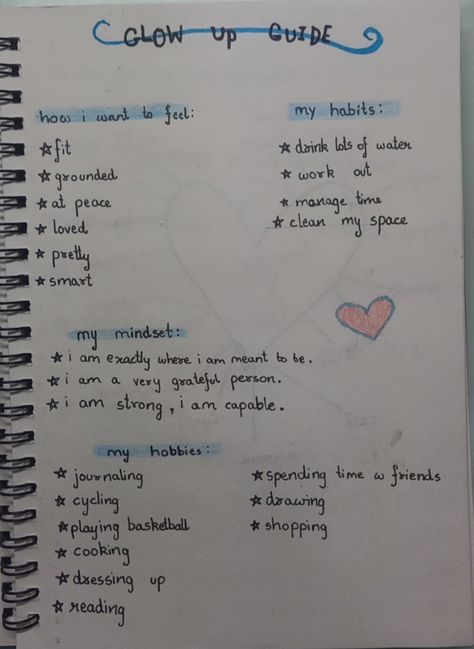 GLOW UP GUIDE
how i want to feel:
☆ fit
☆ grounded
☆ at peace
☆ loved
☆ pretty
☆ smart
my habits:
☆ drink lots of water
☆ work out
☆ manage time
☆ clean my space
my mindset:
☆ i am exactly where i am meant to be.
☆ i am a very grateful person.
☆ i am strong, i am capable.
my hobbies:
☆ journaling
☆ cycling
☆ playing basketball
☆ cooking
☆ dressing up
☆ reading
☆ spending time w friends
☆ drawing
☆ shopping